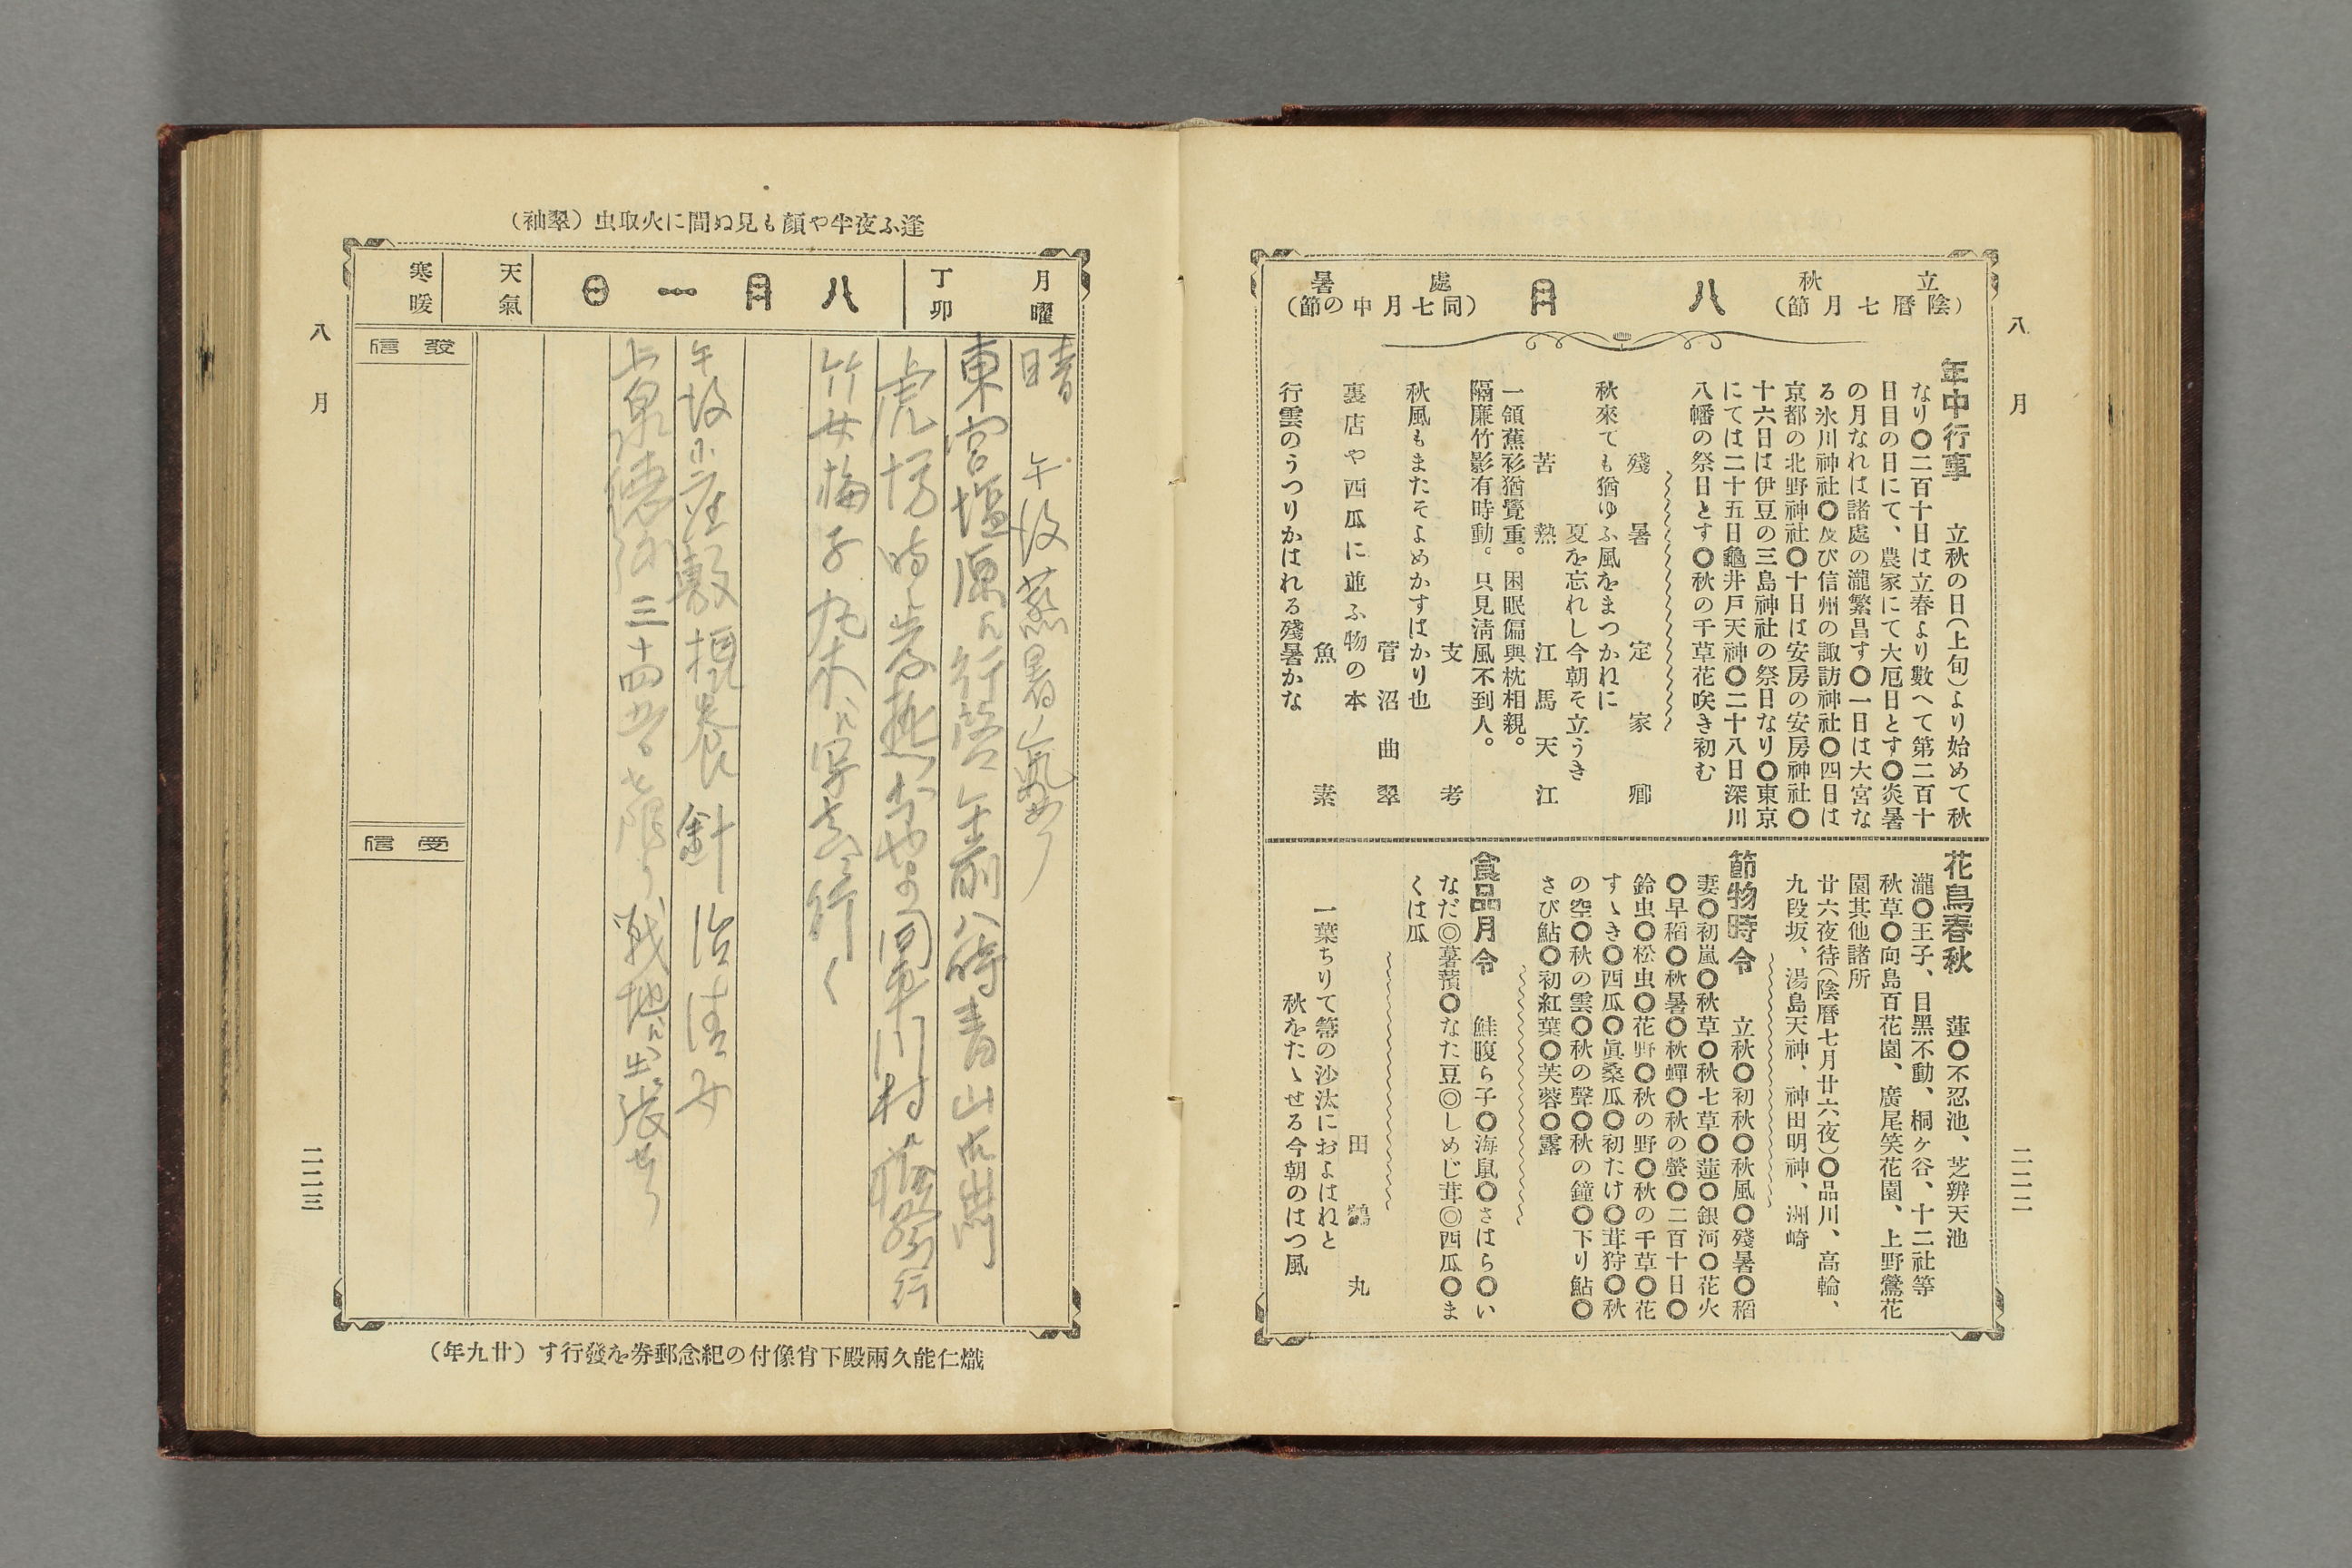 八月
立秋
(陰曆七月節)
八月
處暑
(同七月中の節)
年中行事　立秋の日(上旬)より始めて秋
なり〇二百十日は立春より數へて第二百十
日目の日にて、農家にて大厄日とす〇炎暑
の月なれば諸處の瀧繁昌す〇一日は大宮な
る氷川神社〇及び信州の諏訪神社〇四日は
京都の北野神社〇十日は安房の安房神社〇
十六日は伊豆の三島神社の祭日なり〇東京
にては二十五日龜井戸天神〇二十八日深川
八幡の祭日とす〇秋の千草花咲き初む
殘暑　定家卿
秋來ても猶ゆふ風をまつかねに
夏を忘れし今朝そ立うき
苦熱　江馬天江
一領蕉衫猶覺重。困眠偏與枕相親。
隔廉竹影有時動。只見淸風不到人。
支考
秋風もまたそよめかすはかり也
菅沼曲翠
裏店や西瓜に並ふ物の本
魚素
行雲のうつりかはれる殘暑かな
花鳥春秋　蓮〇不忍池、芝辨天池
瀧〇王子、目黑不動、桐ケ谷、十二社等
秋草〇向島百花園、廣尾笑花園、上野鶯花
園其他諸所
廿六夜待(陰曆七月廿六夜)〇品川、高輪、
九段坂、湯島天神、神田明神、洲崎
節物時令　立秋〇初秋〇秋風〇殘暑〇稻
妻〇初嵐〇秋草〇秋七草〇蓮〇銀河〇花火
〇早稻〇秋暑〇秋蟬〇秋の螢〇二百十日〇
鈴虫〇松虫〇花野〇秋の野〇秋の千草〇花
すゝき〇西瓜〇眞桑瓜〇初たけ〇茸狩〇秋
の空〇秋の雲〇秋の聲〇秋の鐘〇下り鮎〇
さび鮎〇初紅葉〇芙蓉〇露
食品月令　鮭腹ら子〇海鼠〇さはら〇い
なだ◎薯蕷〇なた豆◎しめじ茸◎西瓜〇ま
くは瓜
田鶴丸
一葉ちりて箒の沙汰におよはねと
秋をたゝせる今朝のはつ風
二二二
逢ふ夜半や顏も見ぬ間に火取虫(翠袖)
月曜
丁卯
八月一日
天氣
寒暖
晴　午後蒸暑
東宮塩原へ行啓午前八時青山御出門
虎
竹女梅子 写真 行く
午後 座敷 針治 女
上泉德弥三十四 戦地へ出張
發信
受信
八月
二二三
熾仁能久兩殿下肖像付の紀念郵券を發行す(廿九年)